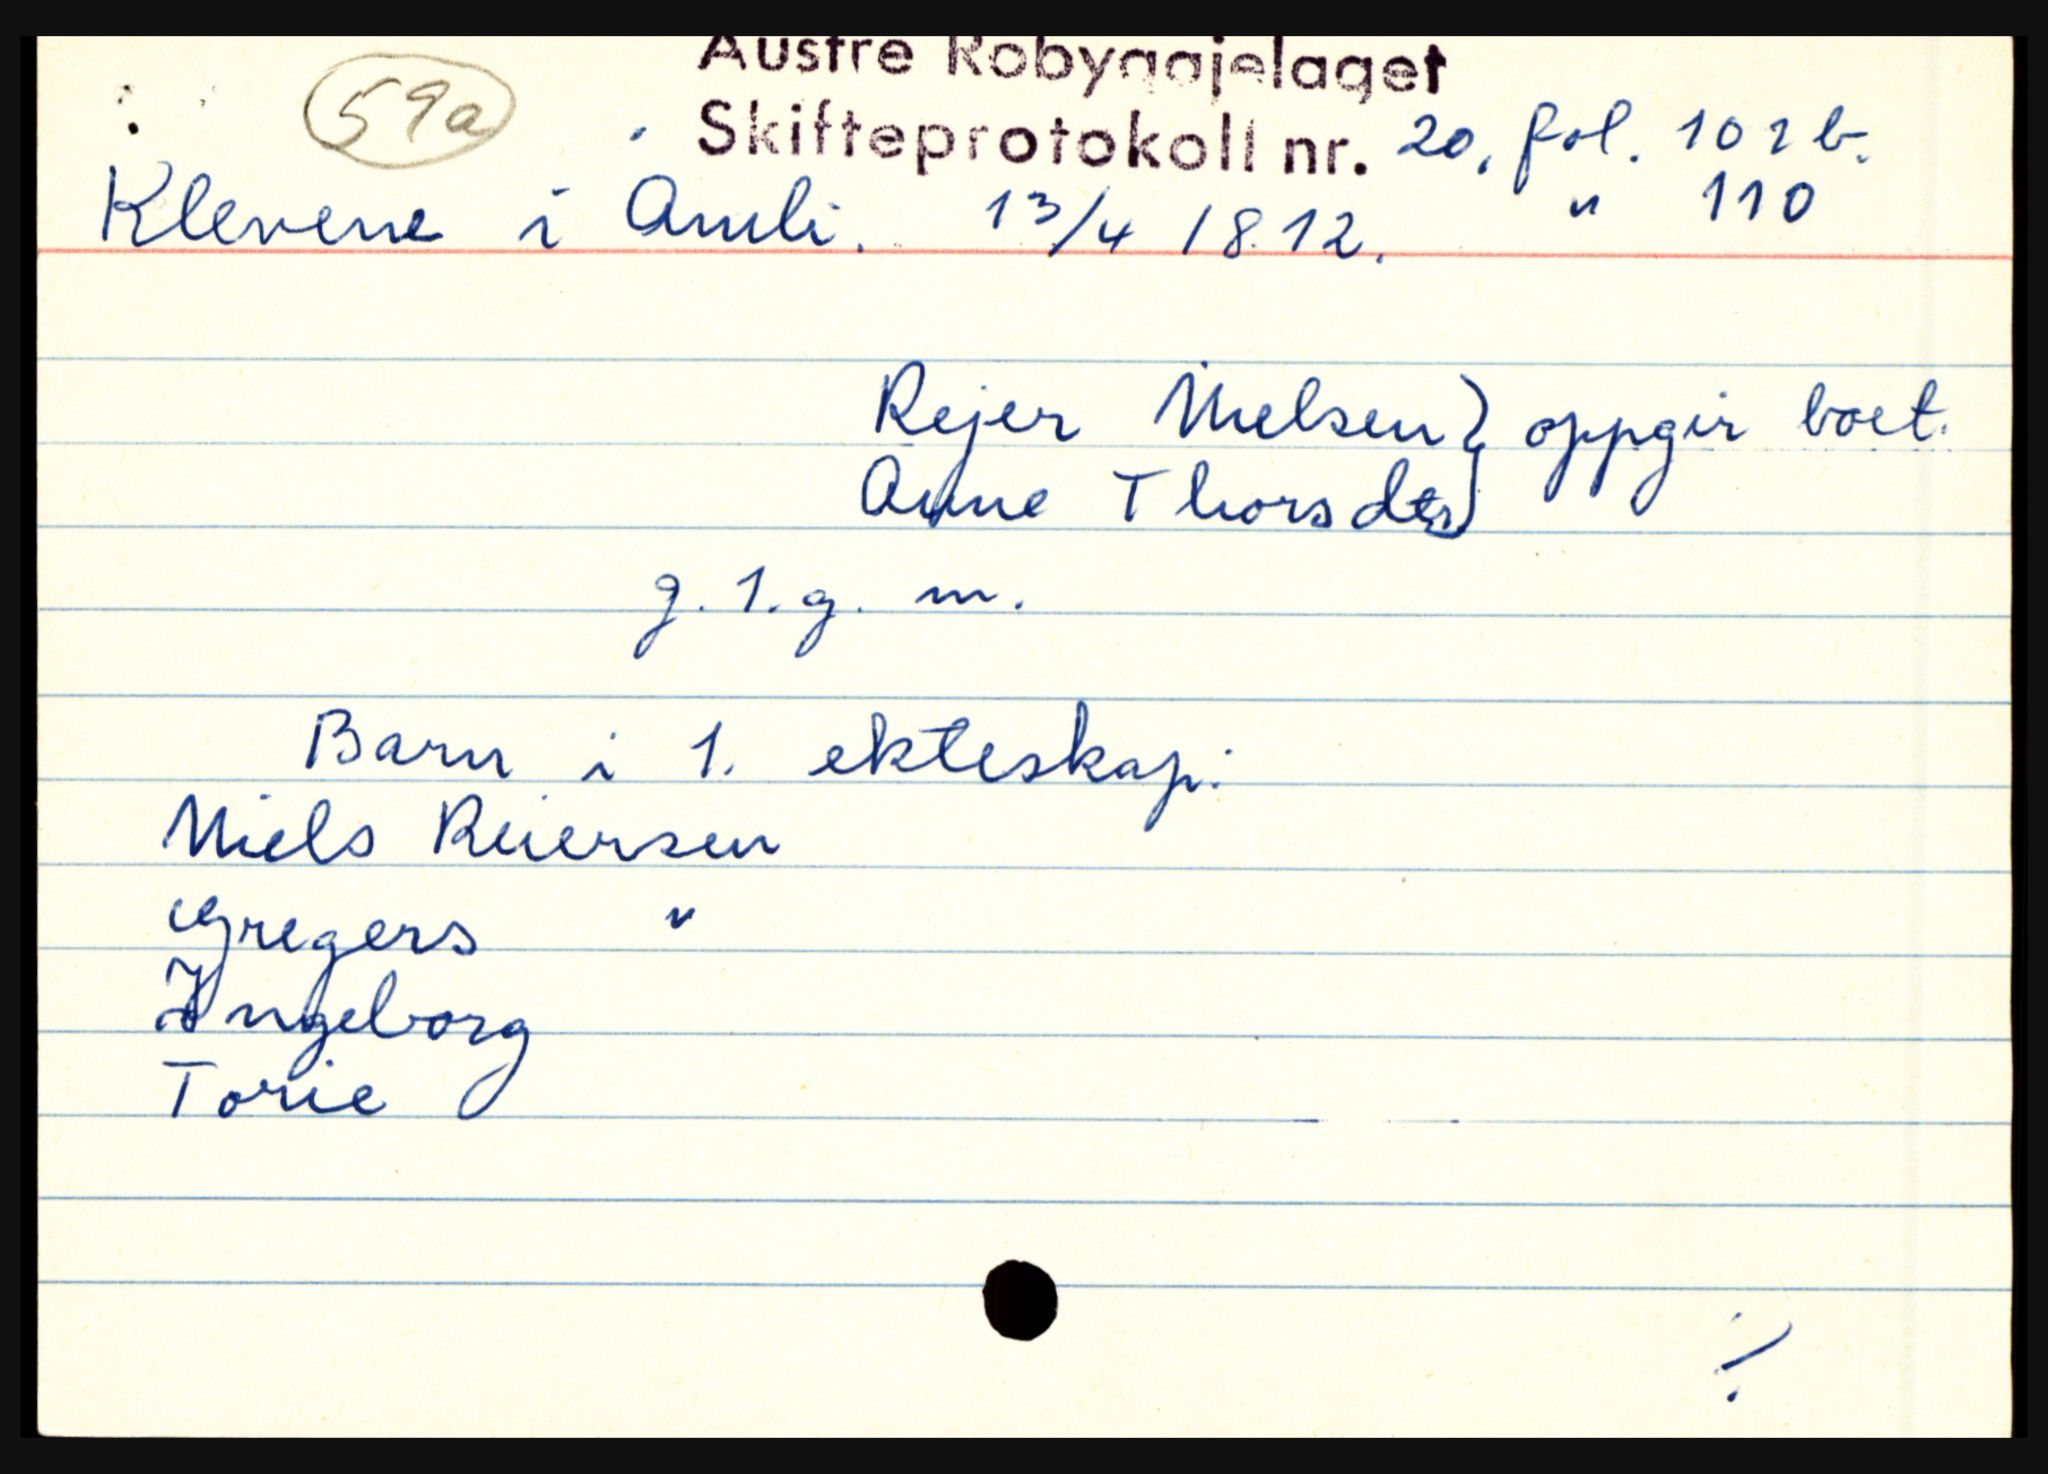 59a
Austre Robyggjelaget
Skifteprotokoll nr. 20, fol. 102 b.
Klevene i Amli. 13/4 1812. " 110
Rejer Nielsen } oppgir boet.
Anne Thorsdtr }
g. 1. g. m.
Barn i 1. ekteskap:
Niels Reiersen
Gregers "
Ingeborg
Torie